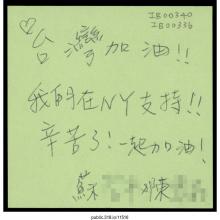 IB00340
IB00336
台灣加油!!
我們在NY支持!!
辛苦了!一起加油!
蘇 陳
public.318.io/11510